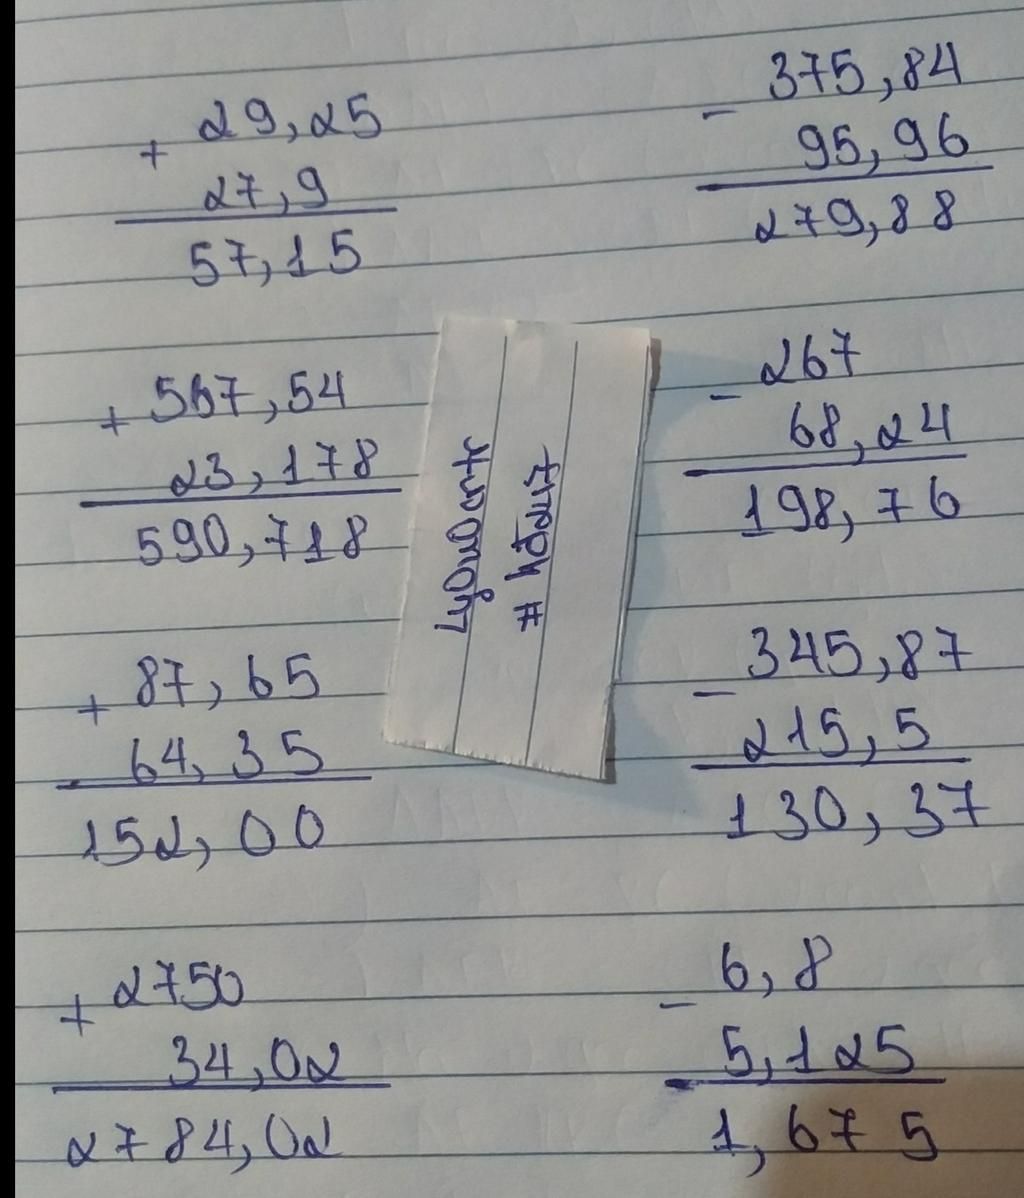 + 29,25
27,9
57,15
- 375,84
95,96
279,88
+ 567,54
23,178
590,718
- 267
68,24
198,76
+ 87,65
64,35
152,00
- 345,87
215,5
130,37
+ 2750
34,02
2784,02
- 6,8
5,125
1,675